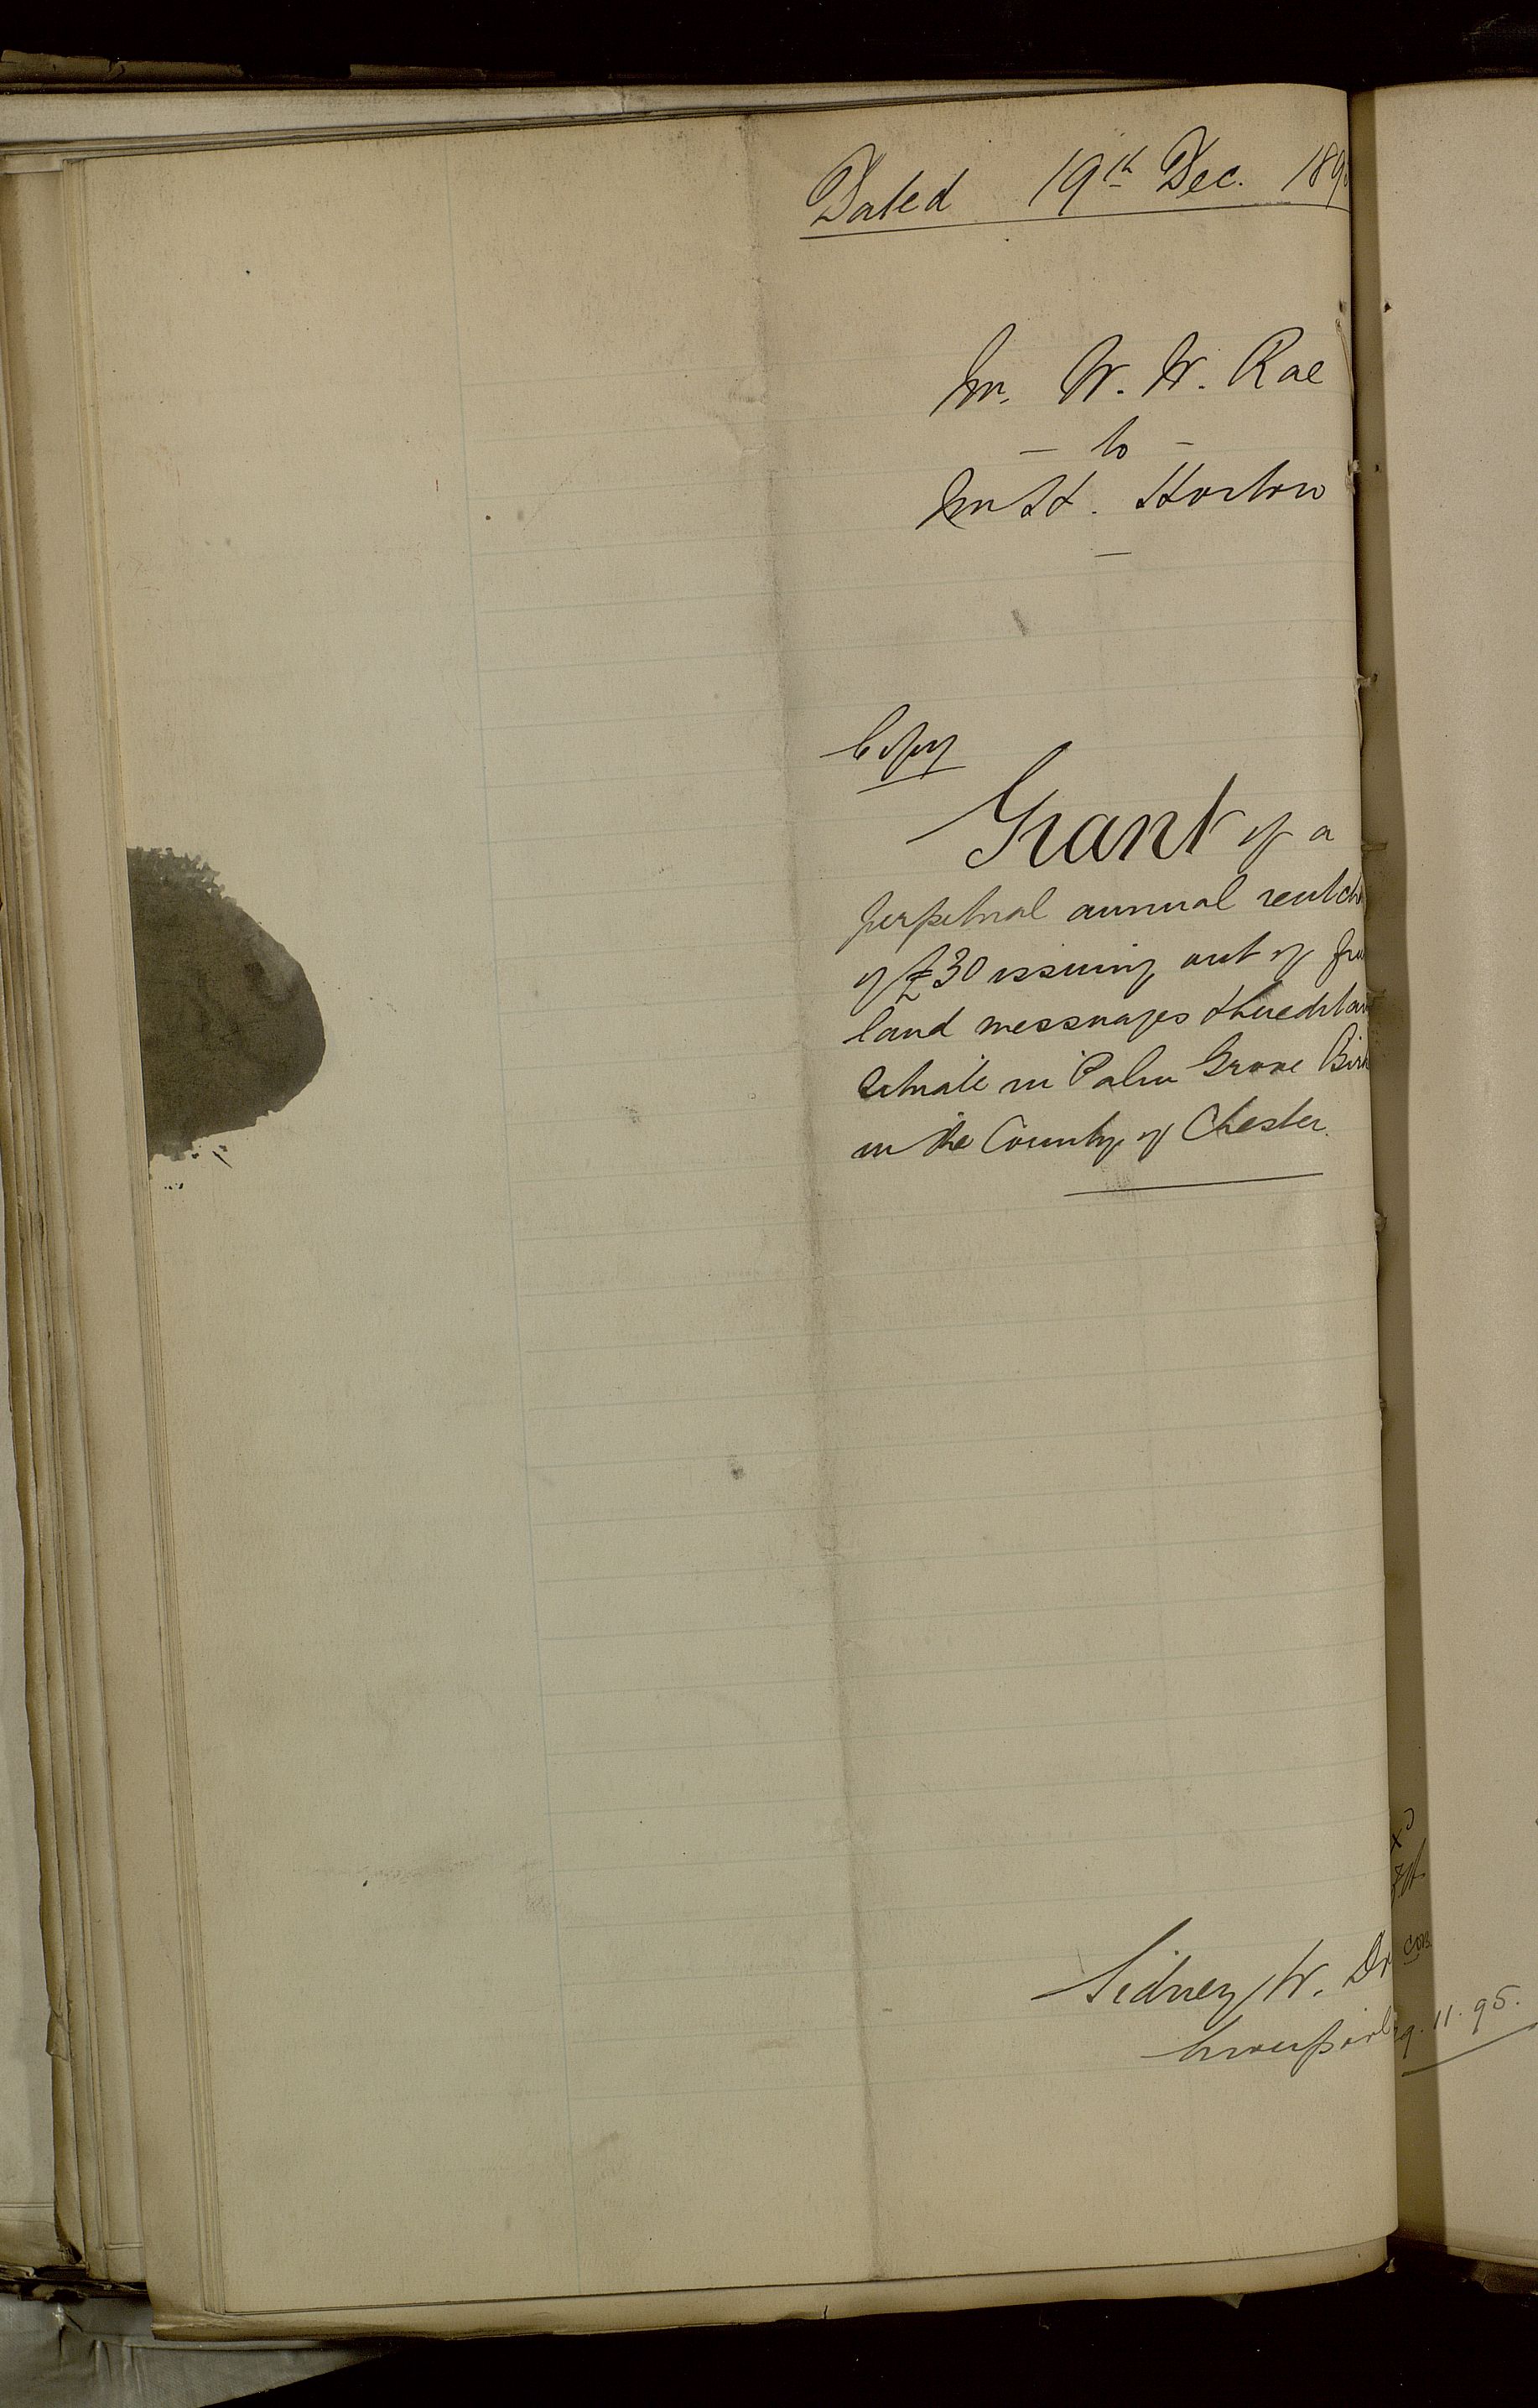 Dated 19th Dec. 189
Mr. W. W. Rae
- to -
Mr H. Horton
Copy
Grant of a
perpetual annual rentch
of £30 issuing out of
land messuages & heredita
situate in Palm Grove Birk
in the County of Chester.
Sidney W. D
Liverpool
con
9. 11. 95.